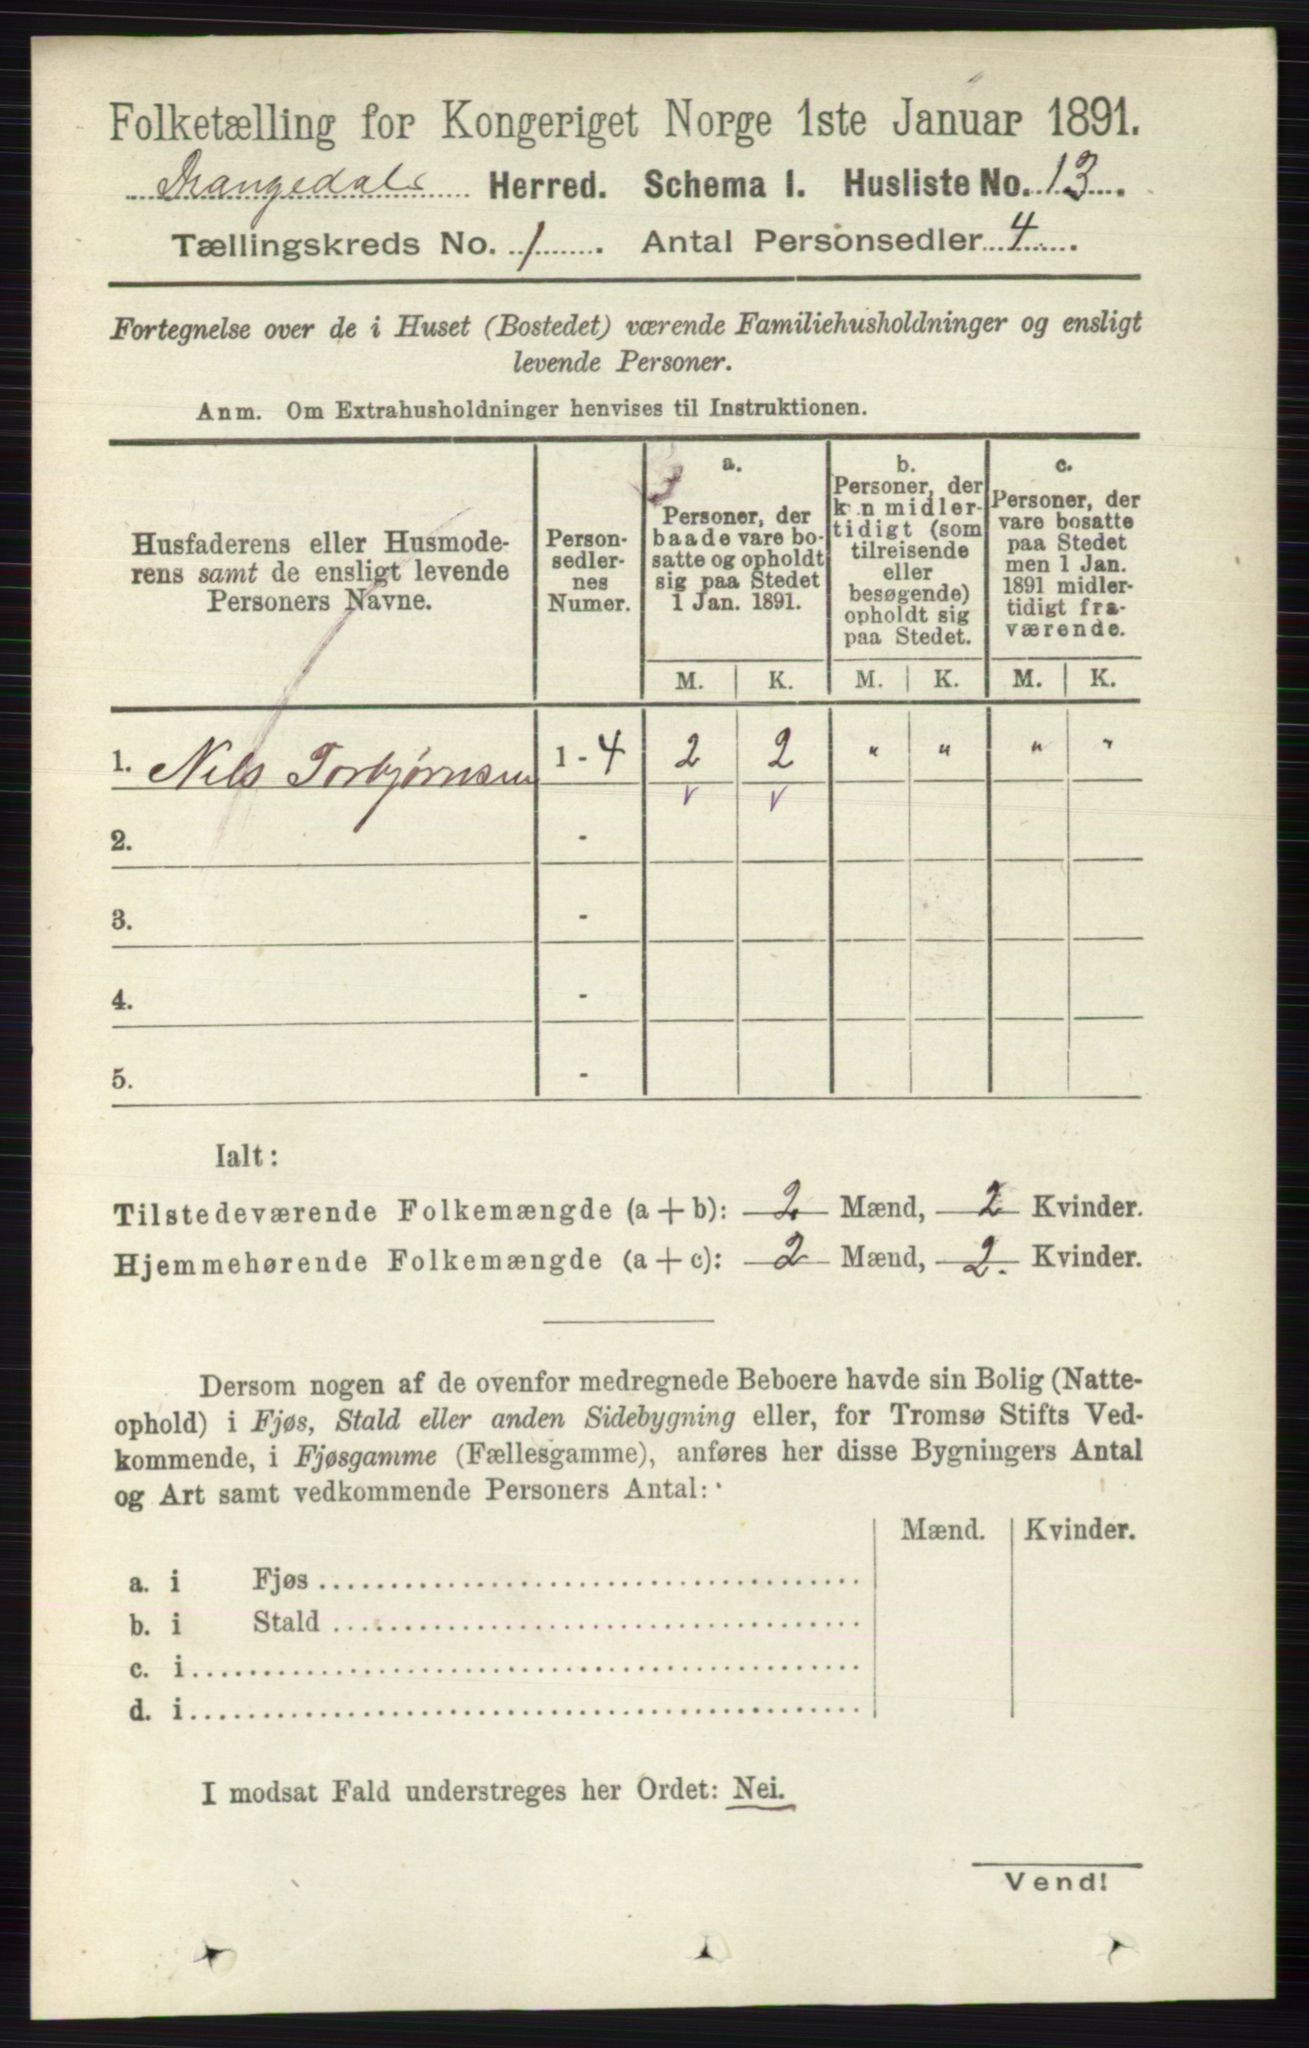 Folketælling for Kongeriget Norge 1ste Januar 1891.
Drangedals Herred. Schema I. Husliste No. 13.
Tællingskreds No. 1. Antal Personsedler 4.
Fortegnelse over de i Huset (Bostedet) værende Familiehusholdninger og ensligt
levende Personer.
Anm. Om Extrahusholdninger henvises til Instruktionen.
Husfaderens eller Husmode-
rens samt de ensligt levende
Personers Navne.
Person-
sedler-
nes
Numer.
a.
Personer, der
baade vare bo-
satte og opholdt
sig paa Stedet
1 Jan. 1891.
b.
Personer, der
kun midler-
tidigt (som
tilreisende
eller
besøgende)
opholdt sig
paa Stedet.
c.
Personer, der
vare bosatte
paa Stedet
men 1 Jan.
1891 midler-
tidigt fra-
værende.
M. K. M. K. M. K.
1. Nils Torbjørnsen 1 - 4 2 2 " " " "
2. -
3. -
4. -
5. -
Ialt:
Tilstedeværende Folkemængde (a + b): 2 Mænd, 2 Kvinder.
Hjemmehørende Folkemængde (a + c): 2 Mænd, 2. Kvinder.
Dersom nogen af de ovenfor medregnede Beboere havde sin Bolig (Natte-
ophold) i Fjøs, Stald eller anden Sidebygning eller, for Tromsø Stifts Ved-
kommende, i Fjøsgamme (Fællesgamme), anføres her disse Bygningers Antal
og Art samt vedkommende Personers Antal:
Mænd. Kvinder.
a. i Fjøs
b. i Stald
c. i
d. i
I modsat Fald understreges her Ordet: Nei.
Vend!